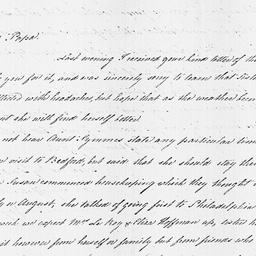 Papa.
Last evening I received your kind letter of the
you for it, and was sincerely sorry to learn that Sister
with headaches, but hope that as the weather becom
she will find herself better.
not hear Aunt Symmes state any particular time
visit to Bedford, but said that she should stay there
Susan commenced housekeeping which they thought
in August; she talked of going first to Philadelphia
we expect Mrs Le Roy & Eliza Hoffman up, tested
it however from herself or family but from friends who